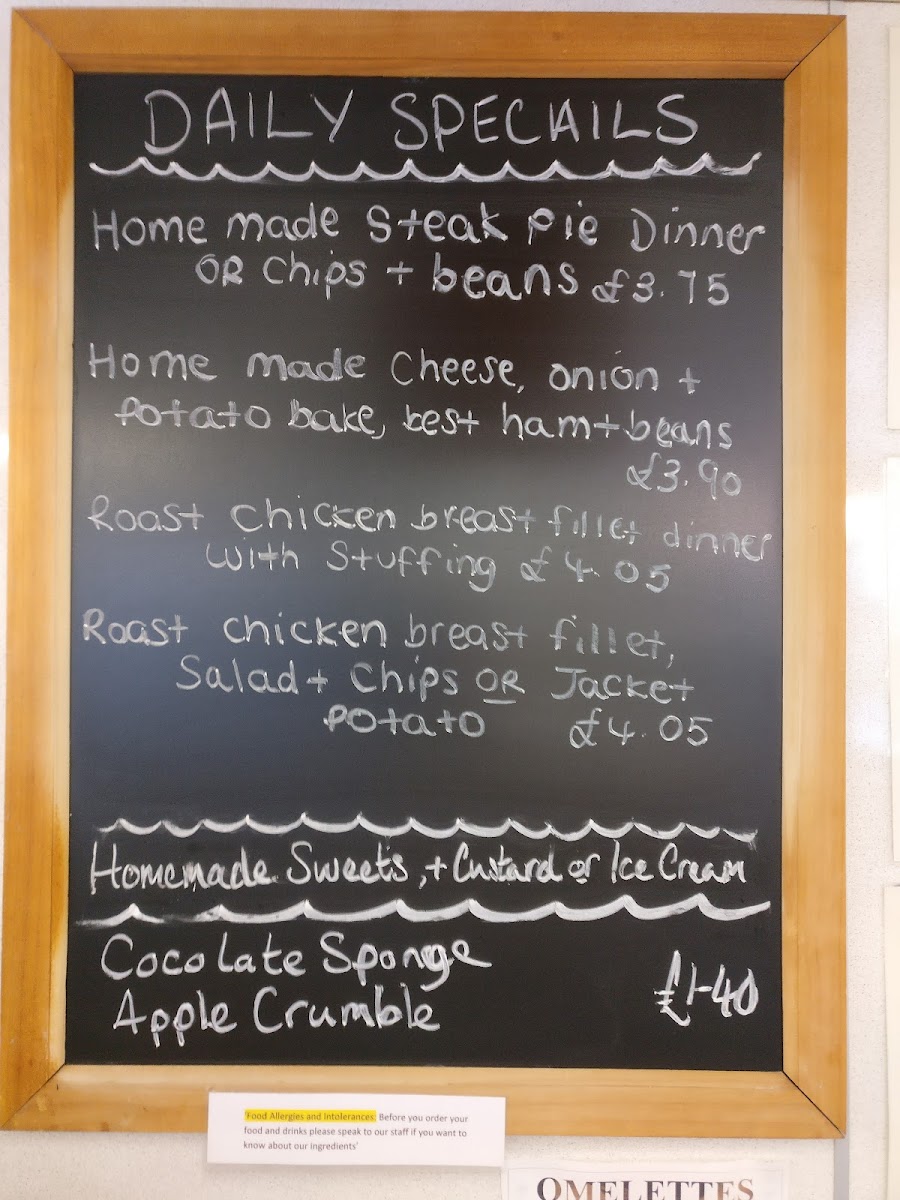 DAILY SPECIALS
Home made Steak Pie Dinner
OR Chips + beans £3.75
Home made Cheese, onion +
Potato bake, best ham + beans
£3.90
Roast chicken breast fillet dinner
with Stuffing £4.05
Roast chicken breast fillet,
Salad + Chips OR Jacket
Potato £4.05
Homemade Sweets, + Custard or Ice Cream
Cocolate Sponge
Apple Crumble £1-40
'Food Allergies and Intolerances: Before you order your
food and drinks please speak to our staff if you want to
know about our ingredients'
OMELETTES